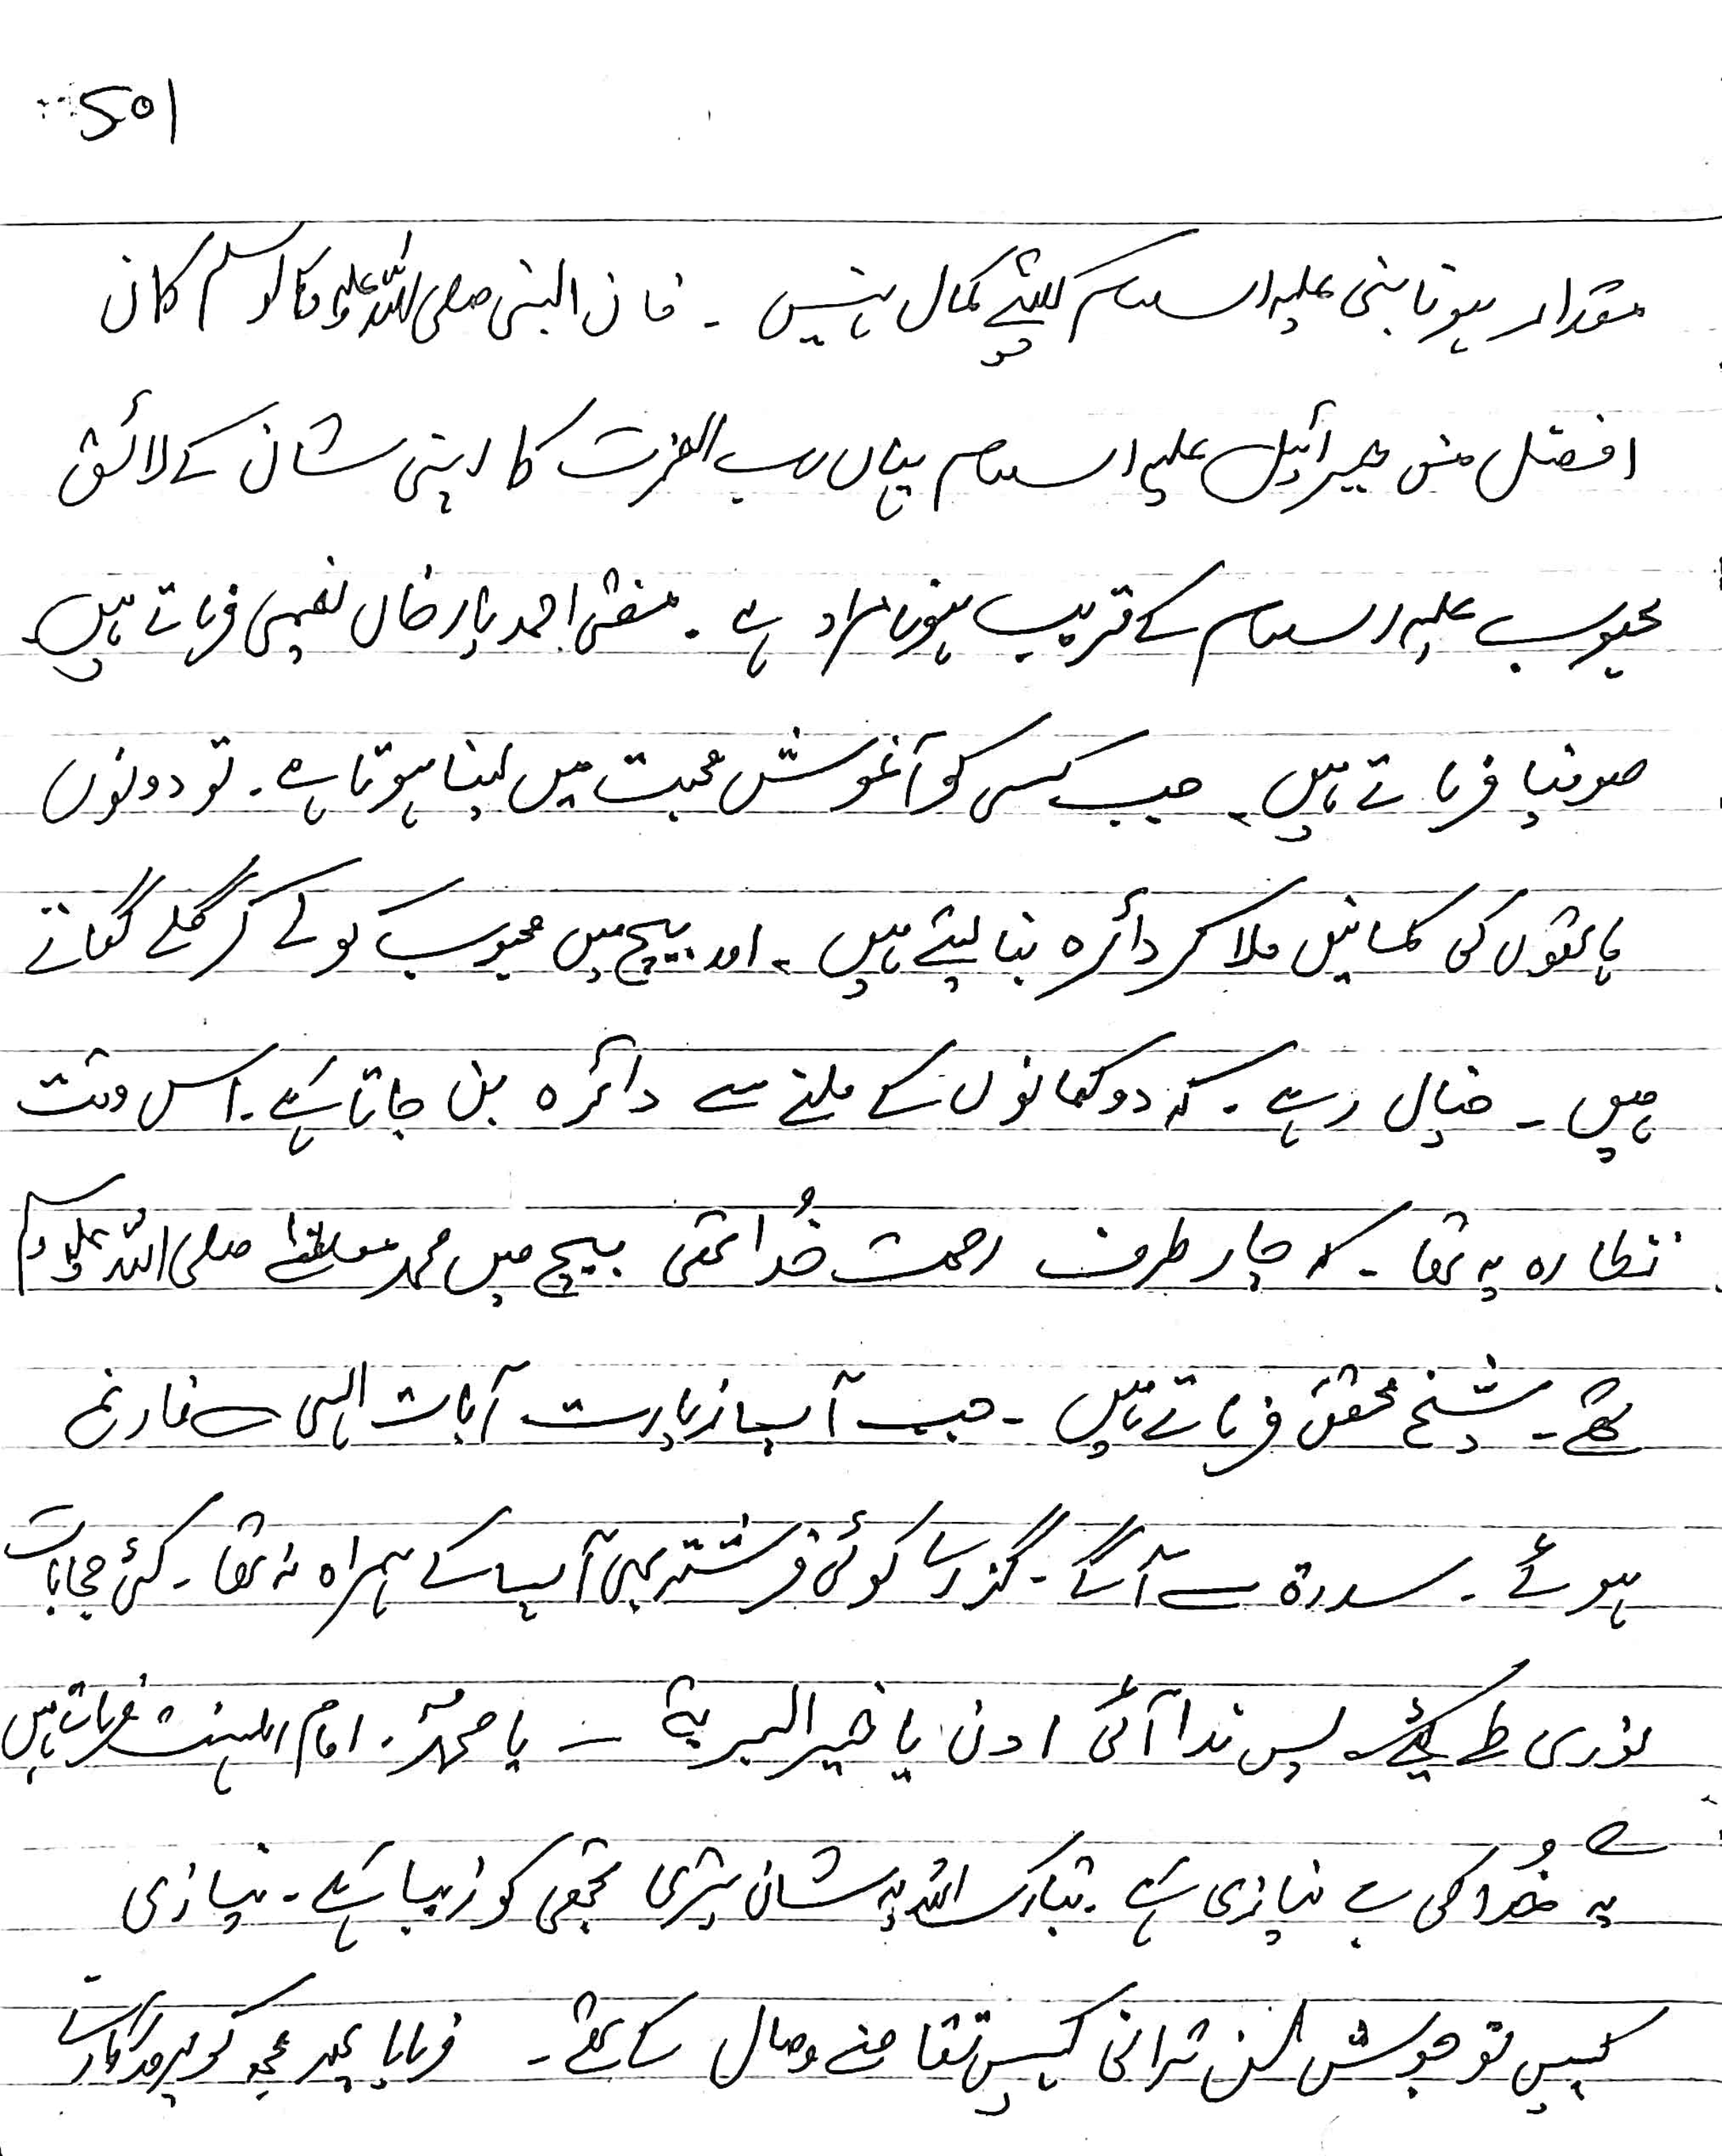 501
مقدار ہونا نبی علیہ السلام کیلئے کمال نہیں ۔ فان النبی صلی اللہ علیہ وآلہ وسلم کان
افضل من جبرائیل علیہ السلام یہاں رب العزت کا اپنی شان کے لائق
محبوب علیہ السلام کے قریب ہونا مراد ہے ۔ مفتی احمد یار خاں نعیمی فرماتے ہیں
صوفیا فرماتے ہیں ۔ جب کسی کو آغوش محبت میں لینا ہوتا ہے ۔ تو دونوں
ہاتھوں کی کمانیں ملا کر دائرہ بنا لیتے ہیں ۔ اور بیچ میں محبوب کو لے کر گلے لگاتے
ہیں ۔ خیال رہے ۔ کہ دو کمانوں کے ملنے سے دائرہ بن جاتا ہے ۔ اس وقت
نظارہ یہ تھا ۔ کہ چار طرف رحمت خُدا تھی بیچ میں محمد مصطفے صلی اللہ علیہ وآلہ وسلم
تھے ۔ شیخ محقق فرماتے ہیں ۔ جب آپ زیارت آیات الہی سے فارغ
ہوئے ۔ سدرۃ سے آگے ۔ گذرے کوئی فرشتہ بھی آپ کے ہمراہ نہ تھا ۔ کئی حجابات
نوری طے کیئے پس ندا آئی ادن یا خیر البریۃ ۔ یا محمدؐ ۔ امام اہلسنت فرماتے ہیں
یہ خُدا کی بے نیازی ہے ۔ تبارک اللہ یہ شان تیری تجھی کو زیبا ہے ۔ نیازی
کہیں تو جوش لن ترانی کہیں تقاضے وصال کے تھے ۔ فرمایا پھر مجھ کو